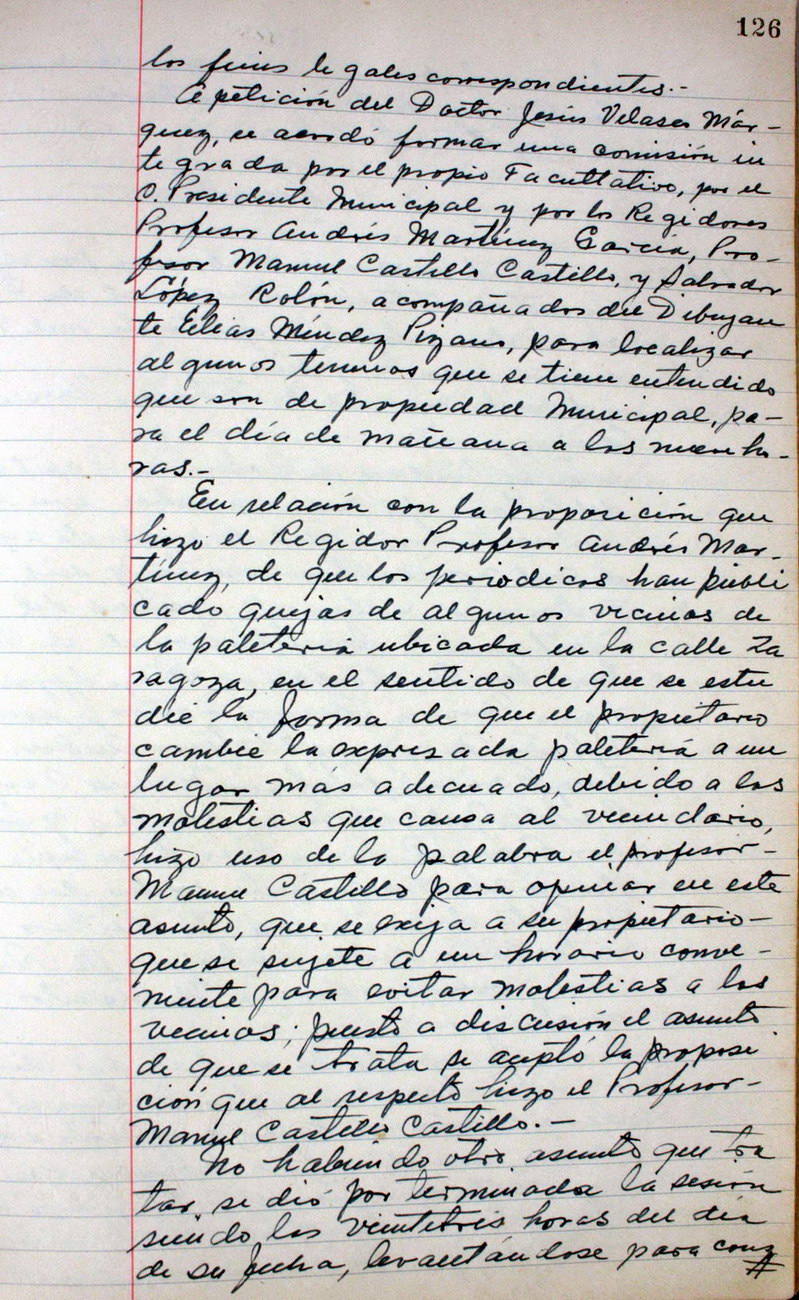 126
los fines legales correspondientes.-
A petición del Doctor Jesús Velasco Már-
quez, se acordó formar una comisión in
tegrada por el propio Facultativo, por el
C. Presidente Municipal y por los Regidores
Profesor Andrés Martínez García, Pro-
fesor Manuel Castillo Castillo, y Salvador
López Rolón, acompañados del Dibujan
te Elías Méndez Pizano, para localizar
algunos terrenos que se tiene entendido
que son de propiedad Municipal, pa-
ra el día de mañana a las nueve ho-
ras.-
En relación con la proposición que
hizo el Regidor Profesor Andrés Mar-
tínez, de que los periodicos han publi
cado quejas de algunos vecinos de
la paletería ubicada en la calle Za
ragoza, en el sentido de que se estu
die la forma de que el propietario
cambie la expresada paletería a un
lugar más adecuado, debido a las
molestias que causa al vecindario,
hizo uso de la palabra el profesor-
Manuel Castillo para opinar en este
asunto, que se exija a su propietario-
que se sujete a un horario conve-
niente para evitar molestias a los
vecinos; puesto a discusión el asunto
de que se trata se aceptó la proposi
ción que al respecto hizo el Profesor-
Manuel Castillo Castillo.-
No habiendo otro asunto que tra
tar, se dió por terminada la sesión
siendo las veintitrés horas del día
de su fecha, levantándose para cons
#